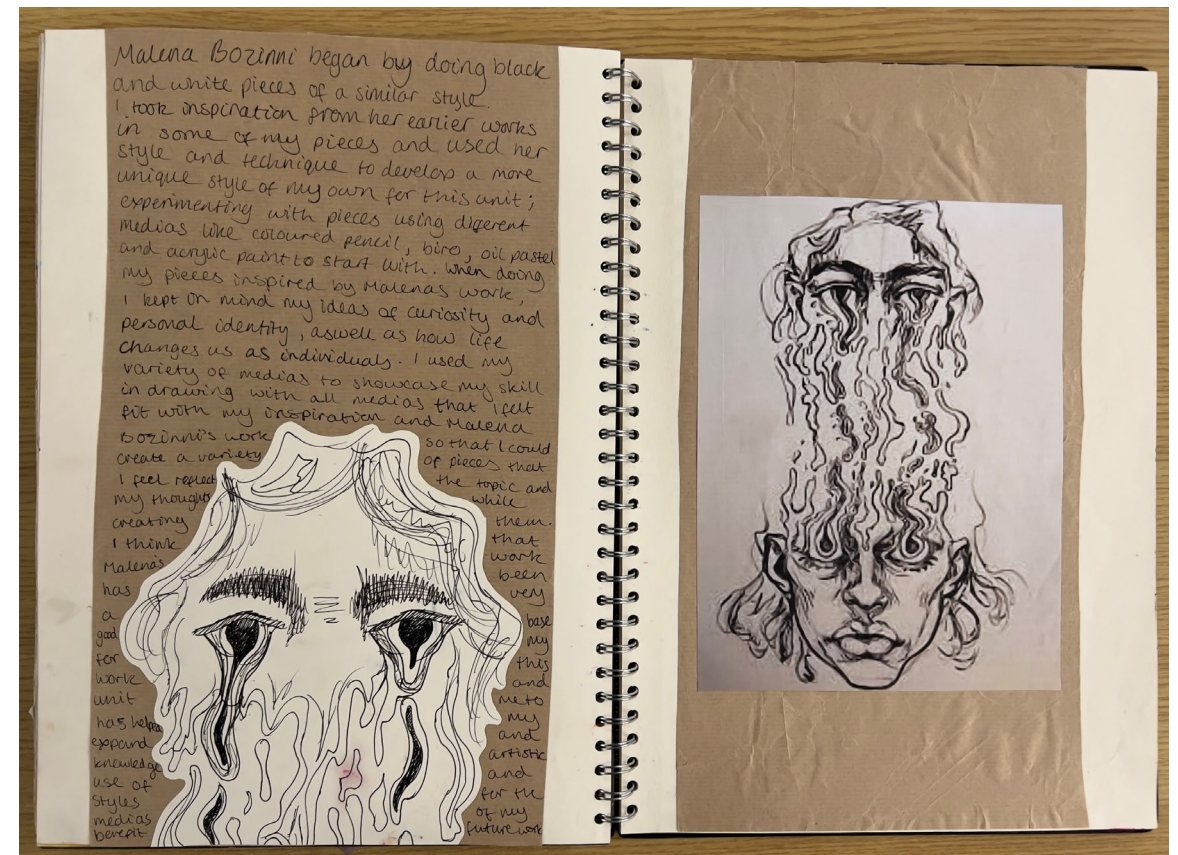 Malena Bozinni began buy doing black
and white pieces of a similar style.
I took inspiration from her earlier works
in some of my pieces and used her
style and technique to develop a more
unique style of my own for this unit;
experimenting with pieces using different
medias like coloured pencil, biro, oil pastel
and acrylic paint to start with. When doing
my pieces inspired by Malenas work,
I kept in mind my ideas of curiosity and
personal identity, aswell as how life
changes us as individuals. I used my
variety of medias to showcase my skill
in drawing with all medias that I felt
fit with my inspiration and Malena
Bozinni's work so that I could
create a variety of pieces that
I feel reflect the topic and
my thoughts while
creating them.
I think that
Malena's work
has been very
a base
good my
for this
work and
unit me to
has helped my
expand and
knowledge artistic
use of and
styles for the
medias of my
benefit future work